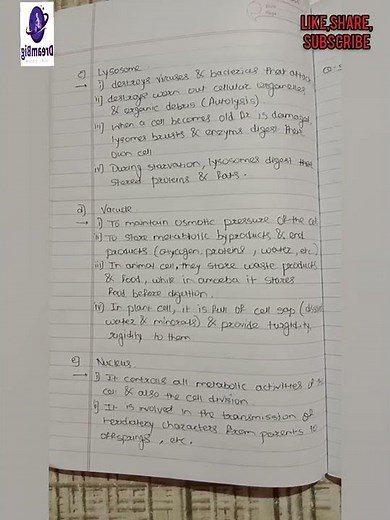 DreamBig
LIKE,SHARE,
SUBSCRIBE
c) Lysosome
→ i) destroys viruses & bacterias that attack
ii) destroys worn out cellular organelles
& organic debris (Autolysis)
iii) When a cell becomes old or is damaged,
lysomes brusts & enzyms digest their
own cell
iv) During starvation, lysosomes digest the
stored proteins & fats.
d) Vacuole
→ i) To maintain osmotic pressure of the cell
ii) To store metabolic byproducts & end
products (Glycogen, proteins, water, etc.)
iii) In animal cell, they store waste products
& food, while in amoeba it stores
food before digestion.
iv) In plant cell, it is full of cell sap
water & minerals) & provide turgidity,
rigidity to them
e) Nucleus
→ i) It controls all metabolic activities of
cell & also the cell division.
ii) It is involved in the transmission of
heredatary characters from parents to
offsprings, etc.